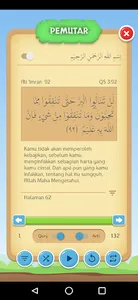 PEMUTAR
بِسْمِ اللّٰهِ الرَّحْمٰنِ الرَّحِيْمِ
Ali 'Imran: 92
QS.3:92
لَنْ تَنَالُوا الْبِرَّ حَتّٰى تُنْفِقُوْا مِمَّا
تُحِبُّوْنَ وَمَا تُنْفِقُوْا مِنْ شَيْءٍ فَاِنَّ
اللّٰهَ بِهٖ عَلِيْمٌ (٩٢)
Kamu tidak akan memperoleh
kebajikan, sebelum kamu
menginfakkan sebagian harta yang
kamu cintai. Dan apa pun yang kamu
infakkan, tentang hal itu sungguh,
Allah Maha Mengetahui.
Halaman 62
1
132